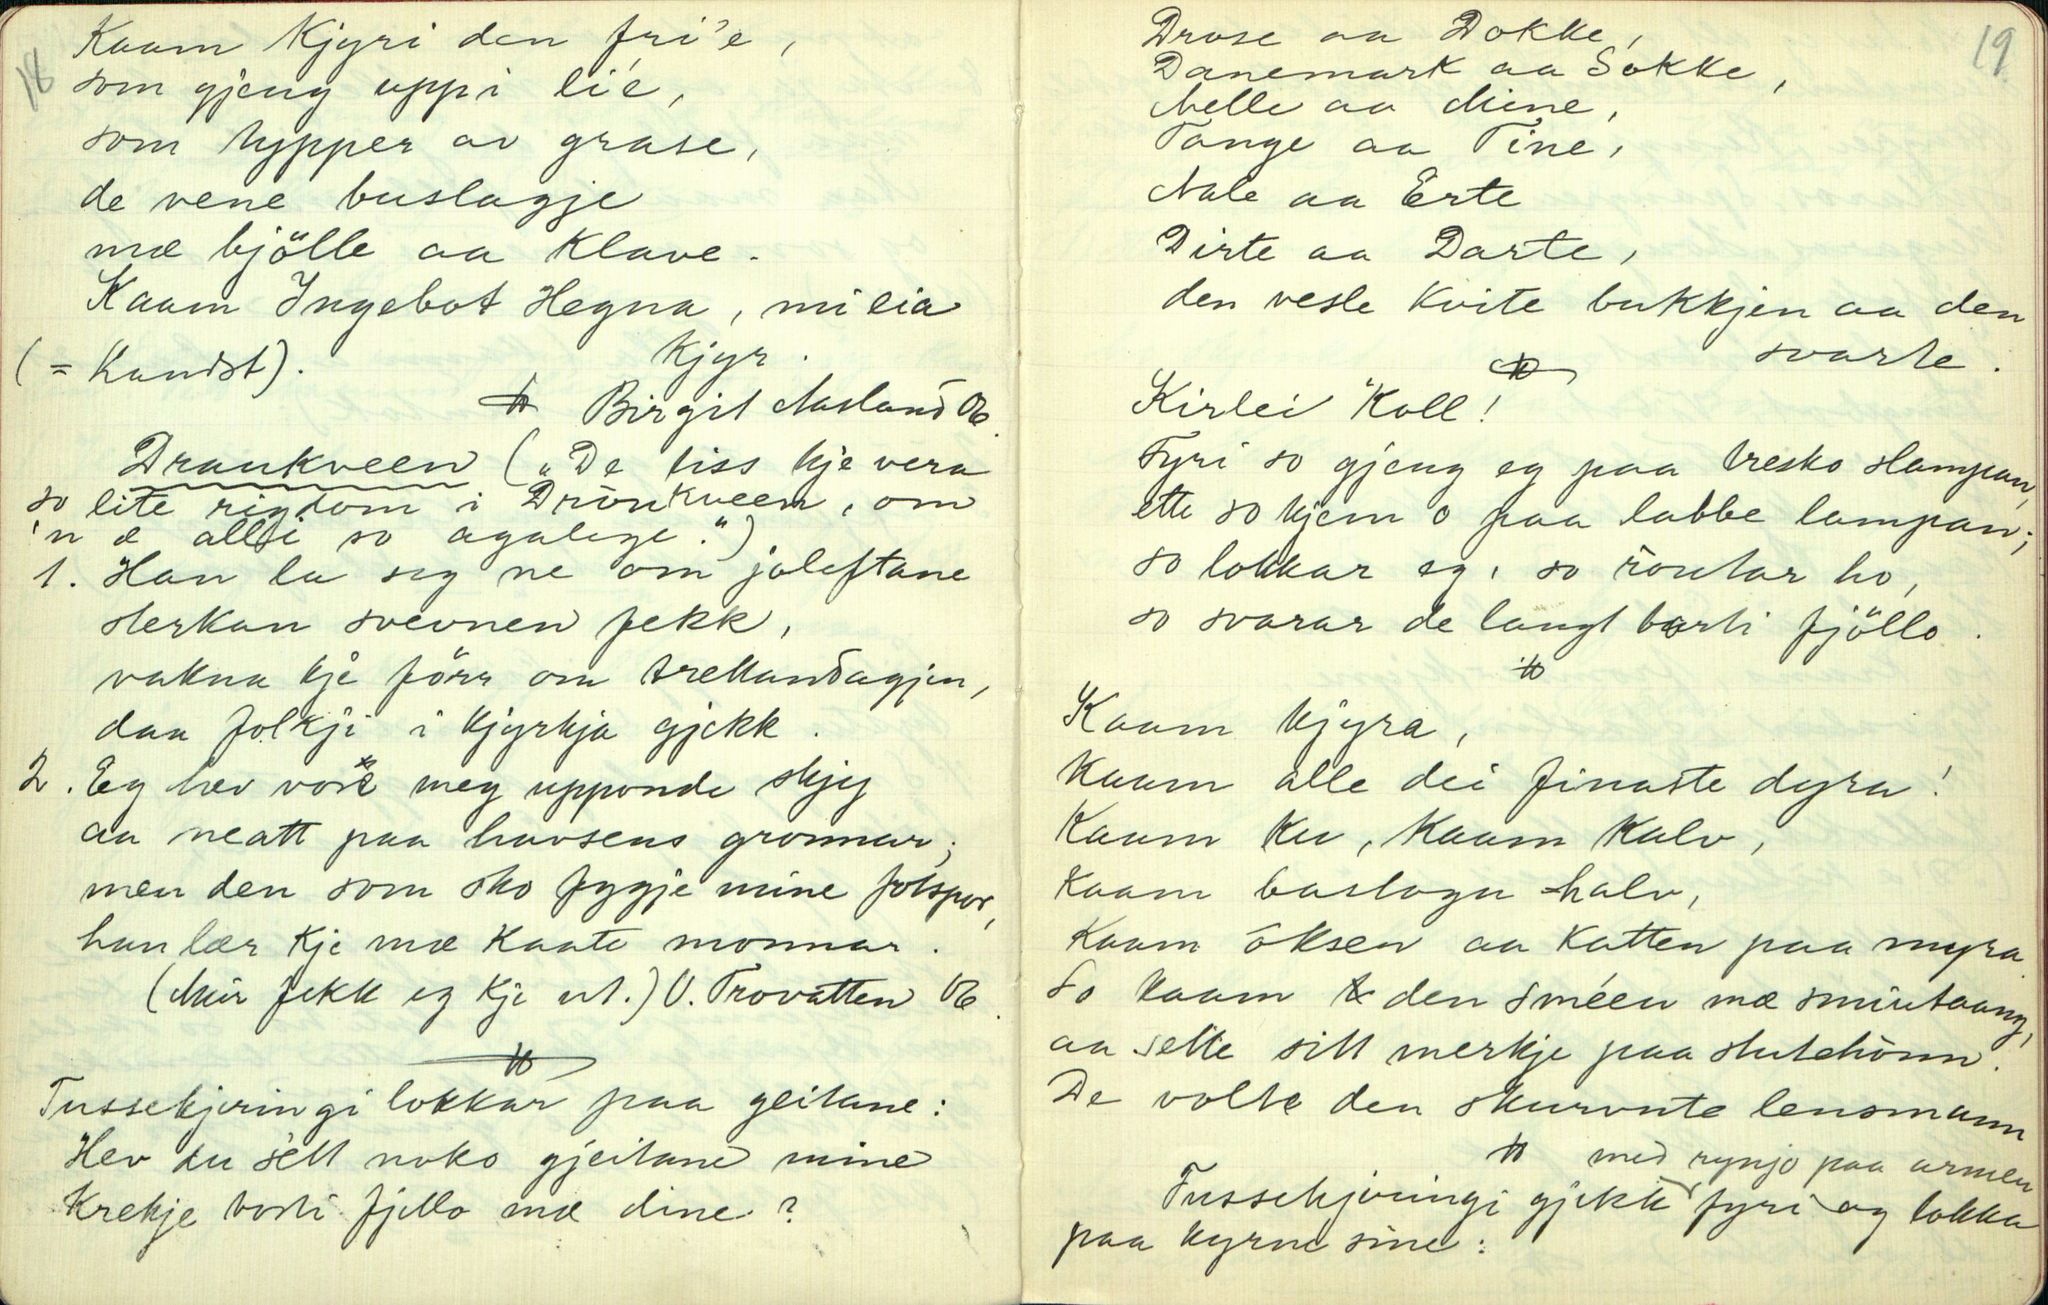 18
Kaam Kjyri den fri'e,
som gjeng uppi lié,
som hypper av grase,
de vene buslagje
mæ bjölle aa Klave.
Kaam Ingebot Hegna, mi eia
Kjyr.
(= Kandst).
Birgit Aasland Ok.
Draukveen („De tiss kje vera
so lite rigdom i Drönkveen, om
'n æ alli so agalege.")
1. Han la seg ne om joleftane
sterkan svevnen fekk,
vakna kje förr om trettandagjen,
daa folkji i kjyrkja gjekk.
2. Eg hev vore meg upponde skjy
aa neatt paa havsens gronnar;
men den som sko fygje mine fotspor,
han lær kje mæ kaate monnar.
(Meir fekk eg kje ut.) O. Trovatten Ok.
Tussekjeringi lokkar paa geitane:
Hev du sett noko gjeitane mine
Krekje borti fjello mæ dine?
19
Drose aa Dokke,
Danemark aa Sokke,
Nelle aa Mine,
Tange aa Tine,
Nale aa Erte
Dirte aa Darte,
den vesle Kvite bukkjen aa den
svarte.
Kirlei Koll!
Fyri so gjeng eg paa tresko stampan,
ette so kjem o paa labbe lampan;
so lokkar eg, so röutar ho,
so svarar de langt borti fjöllo.
Kaam kjyra,
kaam alle dei finaste dyra!
Kaam Ku, Kaam Kalv,
Kaam baslagu halv,
Kaam öksen aa Katten paa myra
So kaam den sméen mæ smiutaang,
aa sette sitt merkje paa stutehönn.
De volte den skurvute lensmann
Tussekjeringi gjekk fyri med rynjo paa armen og lokka
paa kyrne sine: